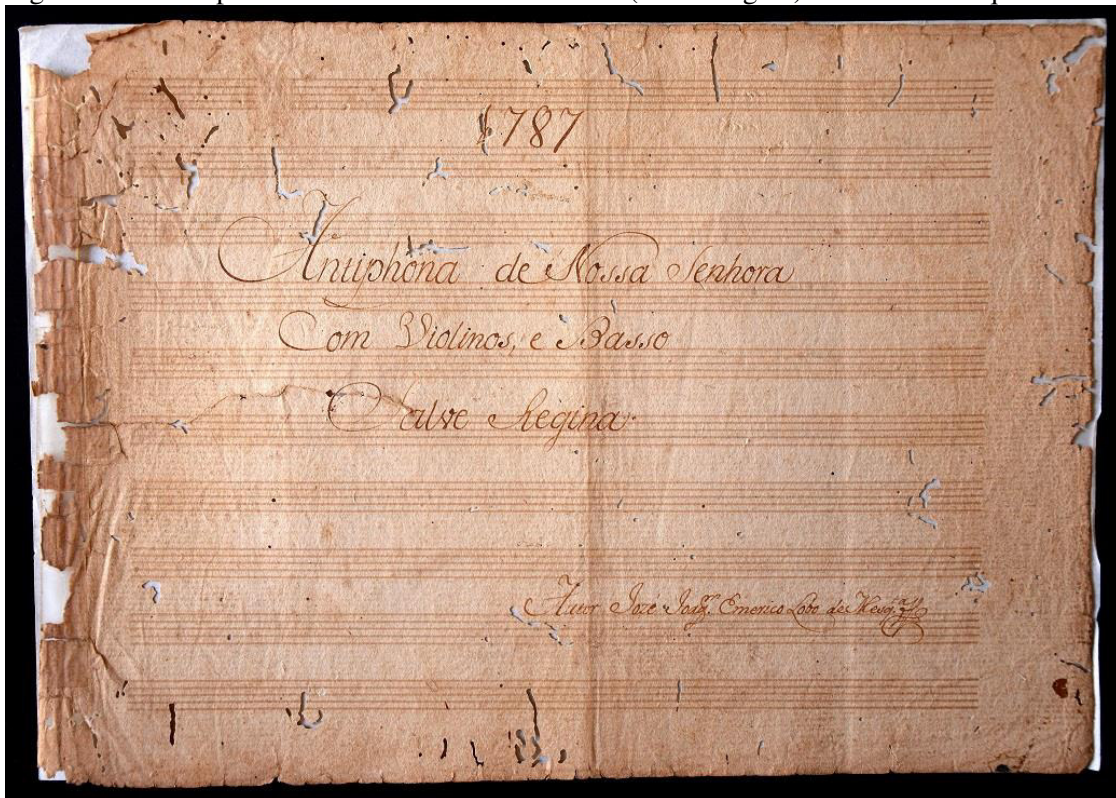 1787
Antiphona de Nossa Senhora
Com Violinos, e Basso
Salve Regina.
Autor Joze Joaqm. Emerico Lobo de Mesqta.